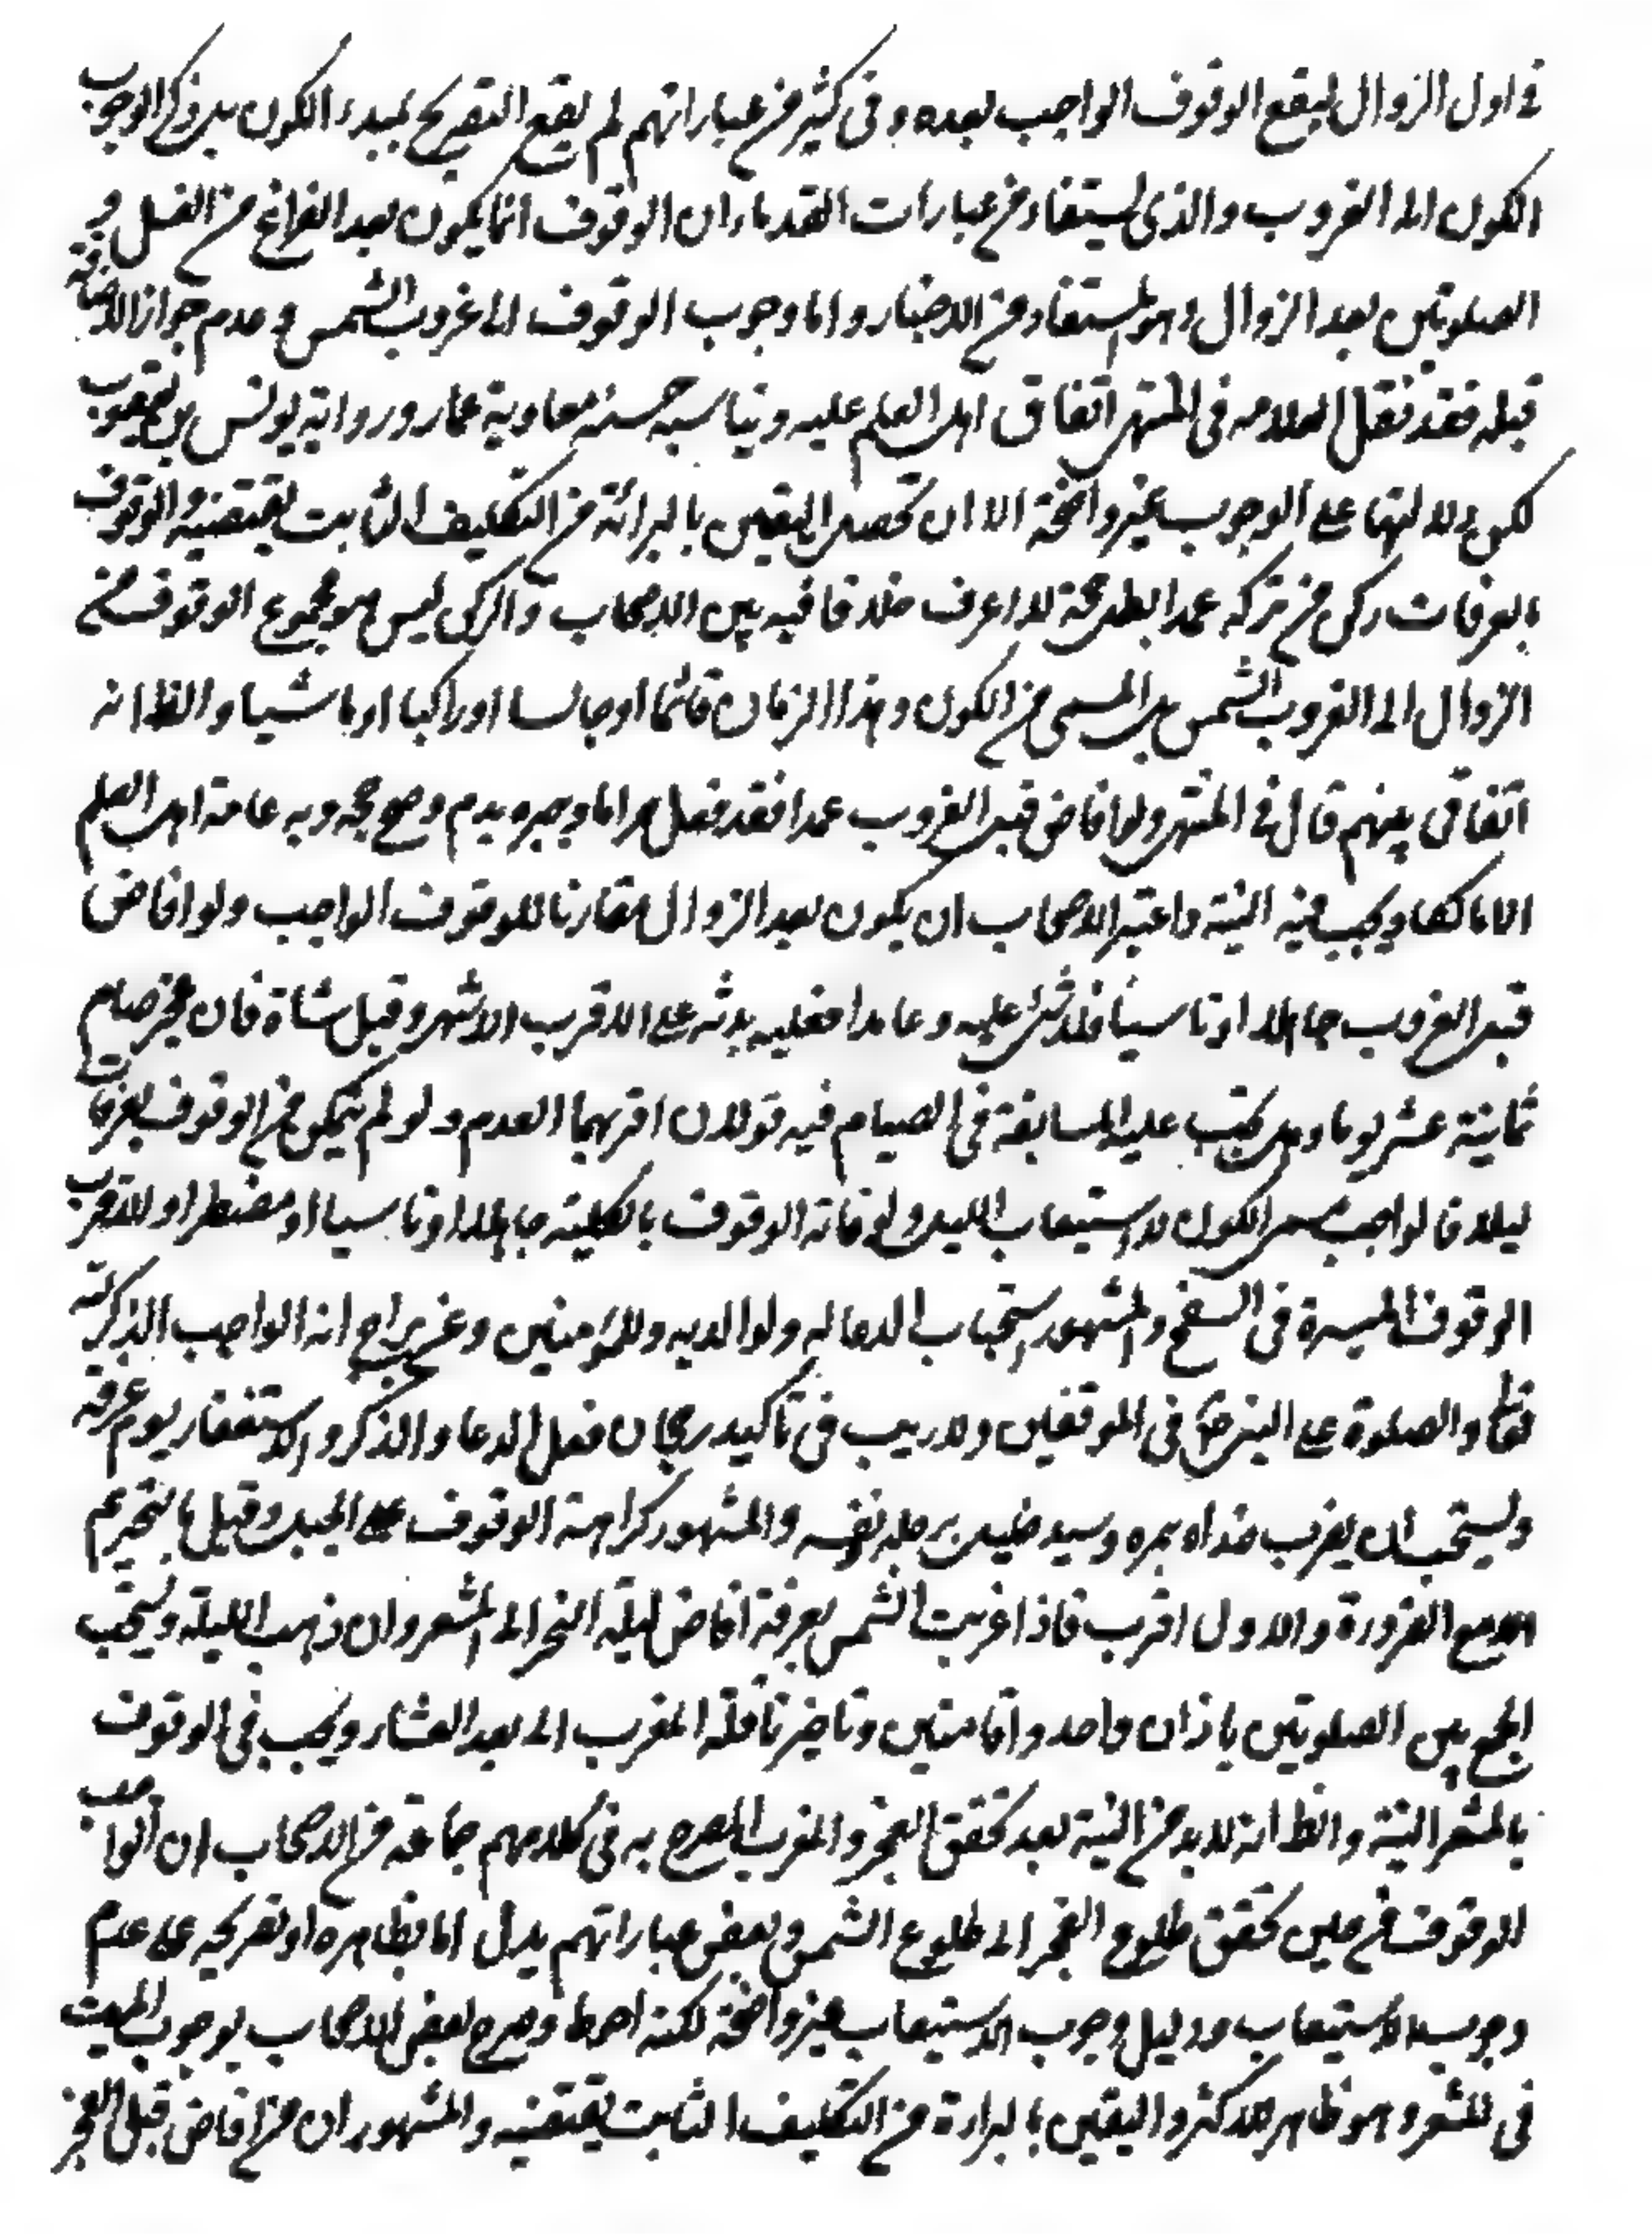 في اول الزوال ليقع الوقوف الواجب بعده وفى كثير من عباراتهم لم يقع التصريح بمبدء الكون بل ذكر الوجوب
الكون الى الغروب والذى يستفاد من عبارات القدماء ان الوقوف انما يكون بعد الفراغ من الغسل و
الصلوتين بعد الزوال وهو المستفاد من الاخبار واما وجوب الوقوف الى غروب الشمس وعدم جواز الافاضة
قبله فقد نقل العلامه فى المنتهى اتفاق اهل العلم عليه ويناسبه حسنة معاوية عمار ورواية يونس بن يعقوب
لكن دلالتها على الوجوب غير واضحة الا ان تحصيل اليقين بالبرائة من التكليف الثابت يقتضيه والوقوف
بالعرفات ركن من تركه عمدا بطل حجه لا اعرف خلافا فيه بين الاصحاب والركن ليس هو مجموع الوقوف من
الزوال الى الغروب الشمس بل المسمى من الكون وهذا الزمان قائما او جالسا او راكبا او ماشيا والظ انه
اتفاقى بينهم قال في المنتهى ولو افاض قبل الغروب عمدا فقد فعل حراما وجبره بدم وصح حجه وبه عامة اهل العلم
الا مالكا ويجب فيه النية واعتبر الاصحاب ان يكون بعد الزوال مقارنا للوقوف الواجب ولو افاض
قبل الغروب جاهلا او ناسيا فلا شئ عليه وعامدا فعليه بدنه على الاقرب الاشهر وقيل شاة فان عجز صام
ثمانية عشر يوما وهل يجب عليه المتابعة فى الصيام فيه قولان اقربهما العدم ولو لم يتمكن من الوقوف بعرفات
ليلا فالواجب مسمى الكون لا استيعاب الليل ولو فاته الوقوف بالكلية جاهلا او ناسيا او مضطرا والاقرب
الوقوف الميسرة فى السفح والمشهور استحباب الدعا له ولوالديه وللمؤمنين وعن ابن البراج انه الواجب الذكر لله
تعالى والصلوة على النبى ص فى الموقفين ولا ريب فى تاكيد رجحان فعل الدعا والذكر والاستغفار يوم عرفة
ويستحب ان يضرب خباه بنمره وسد خلل برحله نفسه والمشهور كراهة الوقوف على الجبل وقيل بالتحريم
الا مع الضرورة والاول اقرب فاذا غربت الشمس بعرفة افاض ليلة النحر الى المشعر وان ذهب الليلة ويستحب
الجمع بين الصلوتين باذان واحد واقامتين وتاخير نافلة المغرب الى بعد العشاء ويجب فى الوقوف
بالمشعر النية والظ انه لا بد من النية بعد تحقق الفجر والمغرب المصرح به فى كلامهم جماعة من الاصحاب ان الواجب
الوقوف من حين تحقق طلوع الفجر الى طلوع الشمس وبعض عباراتهم يدل اما بظاهره او تصريحه على عدم
وجوب الاستيعاب ودليل وجوب الاستيعاب غير واضحة لكنه احوط وصرح بعض الاصحاب بوجوب المبيت
فى المشعر وهو ظاهر الاكثر واليقين بالبراءة من التكليف الثابت يقتضيه والمشهور ان من افاض قبل الفجر